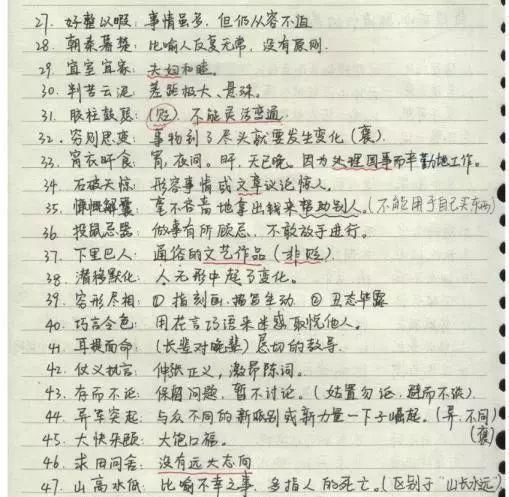 27. 好整以暇：事情虽多，但仍从容不迫
28. 朝秦暮楚：比喻人反复无常，没有原则.
29. 宜室宜家：夫妇和睦。
30. 判若云泥：差距极大、悬殊。
31. 胶柱鼓瑟：(贬). 不能灵活变通.
32. 穷则思变：事物到了尽头就要发生变化(褒).
33. 宵衣旰食：宵，夜间。旰，天已晚。因为处理国事而辛勤地工作。
34. 石破天惊：形容事情或文章议论惊人。
35. 慷慨解囊：毫不吝啬地拿出钱来帮助别人。(不能用于自己买东西)
36. 投鼠忌器：做事有所顾忌，不敢放手进行。
37. 下里巴人：通俗的文艺作品(非贬).
38. 潜移默化：人无形中起了变化。
39. 穷形尽相：① 指刻画、描写生动 ② 丑态毕露
40. 巧言令色：用花言巧语来迷惑、取悦他人。
41. 耳提面命：(长辈对晚辈) 恳切的教导.
42. 仗义执言：伸张正义，激昂陈词。
43. 存而不论：保留问题，暂不讨论。(姑置勿论，避而不谈).
44. 异军突起：与众不同的新派别或新力量一下子崛起。(异，不同)
(褒)
45. 大快朵颐：大饱口福。
46. 求田问舍：没有远大志向
47. 山高水低：比喻不幸之事，多指人的死亡。(区别于"山长水远")